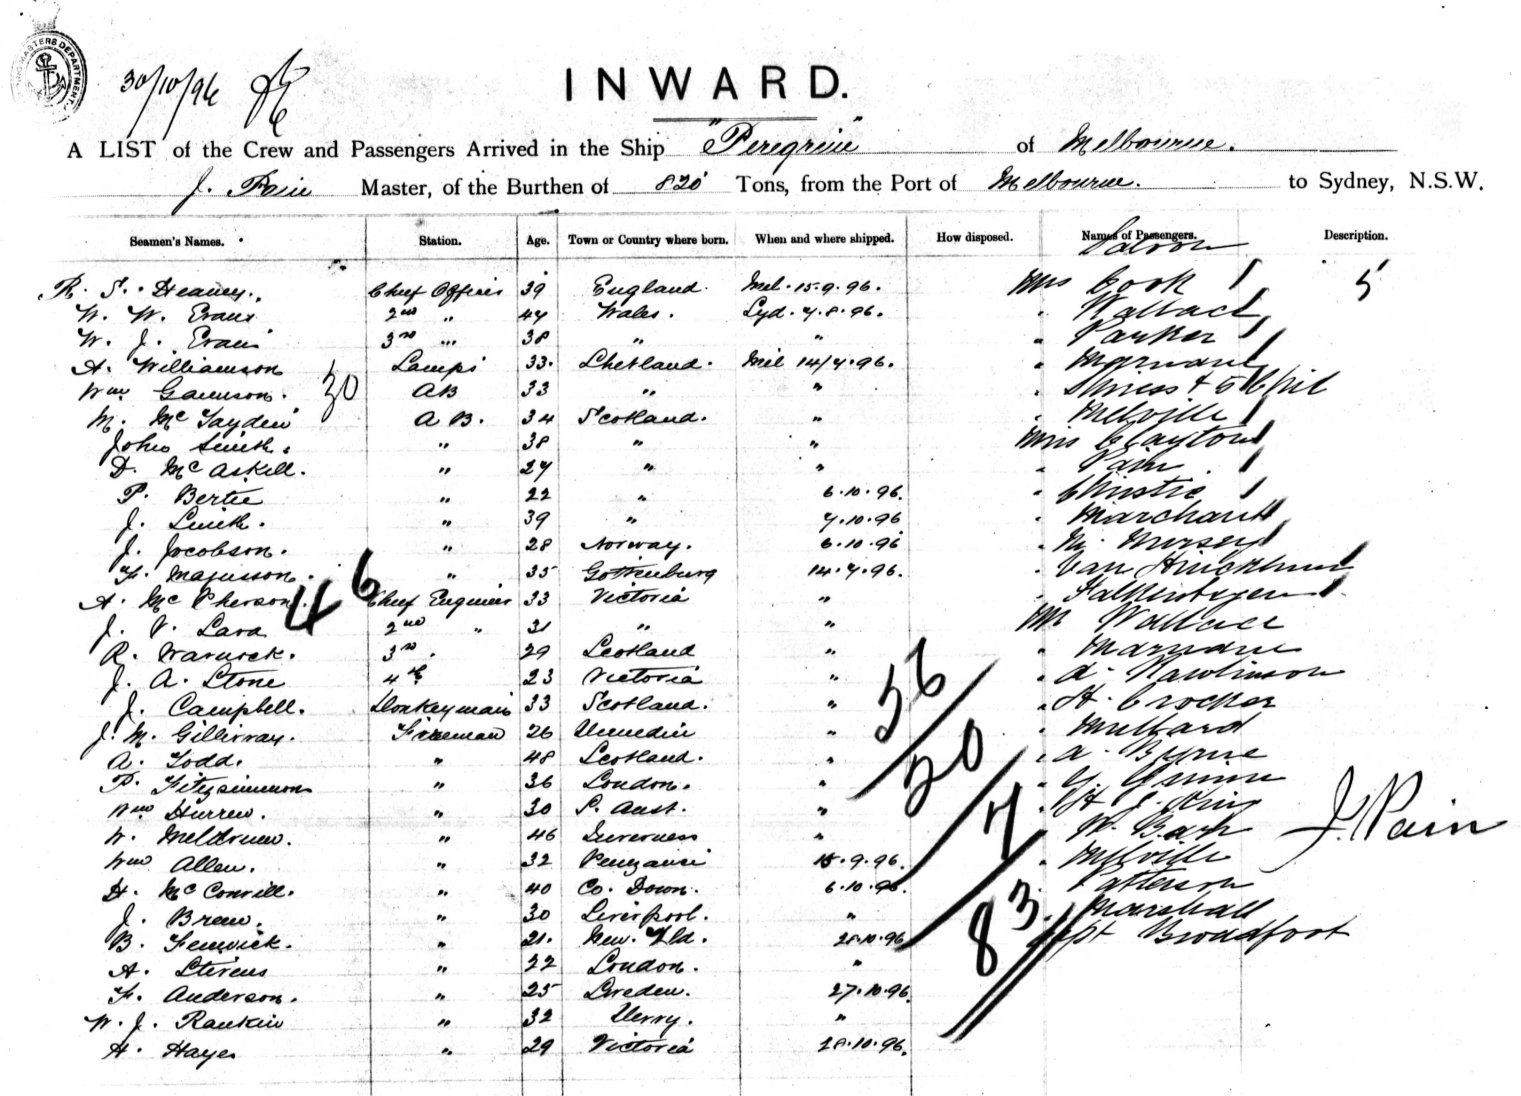 MASTERS DEPARTMENT
30/10/96
INWARD.
A LIST of the Crew and Passengers Arrived in the Ship "Peregrine" of Melbourne.
J. Pain Master, of the Burthen of 820 Tons, from the Port of Melbourne. to Sydney, N.S.W.
Seamen's Names. Station. Age. Town or Country where born. When and where shipped. How disposed. Names of Passengers. Description.
Saloon
R. S. Heaney. Chief Officer 39 England. Mel. 15.9.96. Mrs Cook 1 5
W. W. Evans 2nd " 44 Wales. Syd. 7.8.96. " Wallace 1
W. J. Evans 3rd " 38 " " " Parker 1
A. Williamson Lamps 33. Shetland. Mel 14/7.96. "
Wm Garrison. 30 AB 33 " " "
M. Mc Fayden A B. 34 Scotland. " " Melville 1
John Smith. " 38 " " Mrs Clayton 1
D. Mc Askill. " 27 " " " Pain 1
P. Bertie " 22 " 6.10.96. " Christie 1
J. Smith. " 39 " 7.10.96 " Marchant 1
J. Jacobson. " 28 Norway. 6.10.96 "
F. Magnusson. " 35 Gothenburg 14.7.96. " Van
A. Mc Pherson. 46 Chief Engineer 33 Victoria " "
J. V. Lara 2nd " 31 " " Mr Wallace
R. Warwick. 3rd " 29 Scotland " "
J. A. Stone 4th 23 Victoria " 56 " A. Rawlinson
J. Campbell. Donkeyman 33 Scotland. " " H. Crocker
J. M. Gillivray. Fireman 26 Dunedin " 20 " Millard
A. Todd. " 48 Scotland. " " A. Byrne
P. Fitzsimmons " 36 London. " "
Wm Hurrew. " 30 S. Aust. " 7 " H. J. King J. Pain
W. Meldrum. " 46 Inverness " " W.
Wm Allen. " 32 Penzance 15.9.96. " Melville
H. Mc Convill. " 40 Co. Down. 6.10.96. " Patterson
J. Brew. " 30 Liverpool. " 83 " Marshall
B. Fenwick. " 21. New. Zld. 28.10.96 Capt Broadfoot
A. Stevens " 22 London. "
F. Anderson. " 25 Sweden. 27.10.96.
W. J. Rankin " 32 Derry. "
H. Hayes " 29 Victoria 28.10.96.